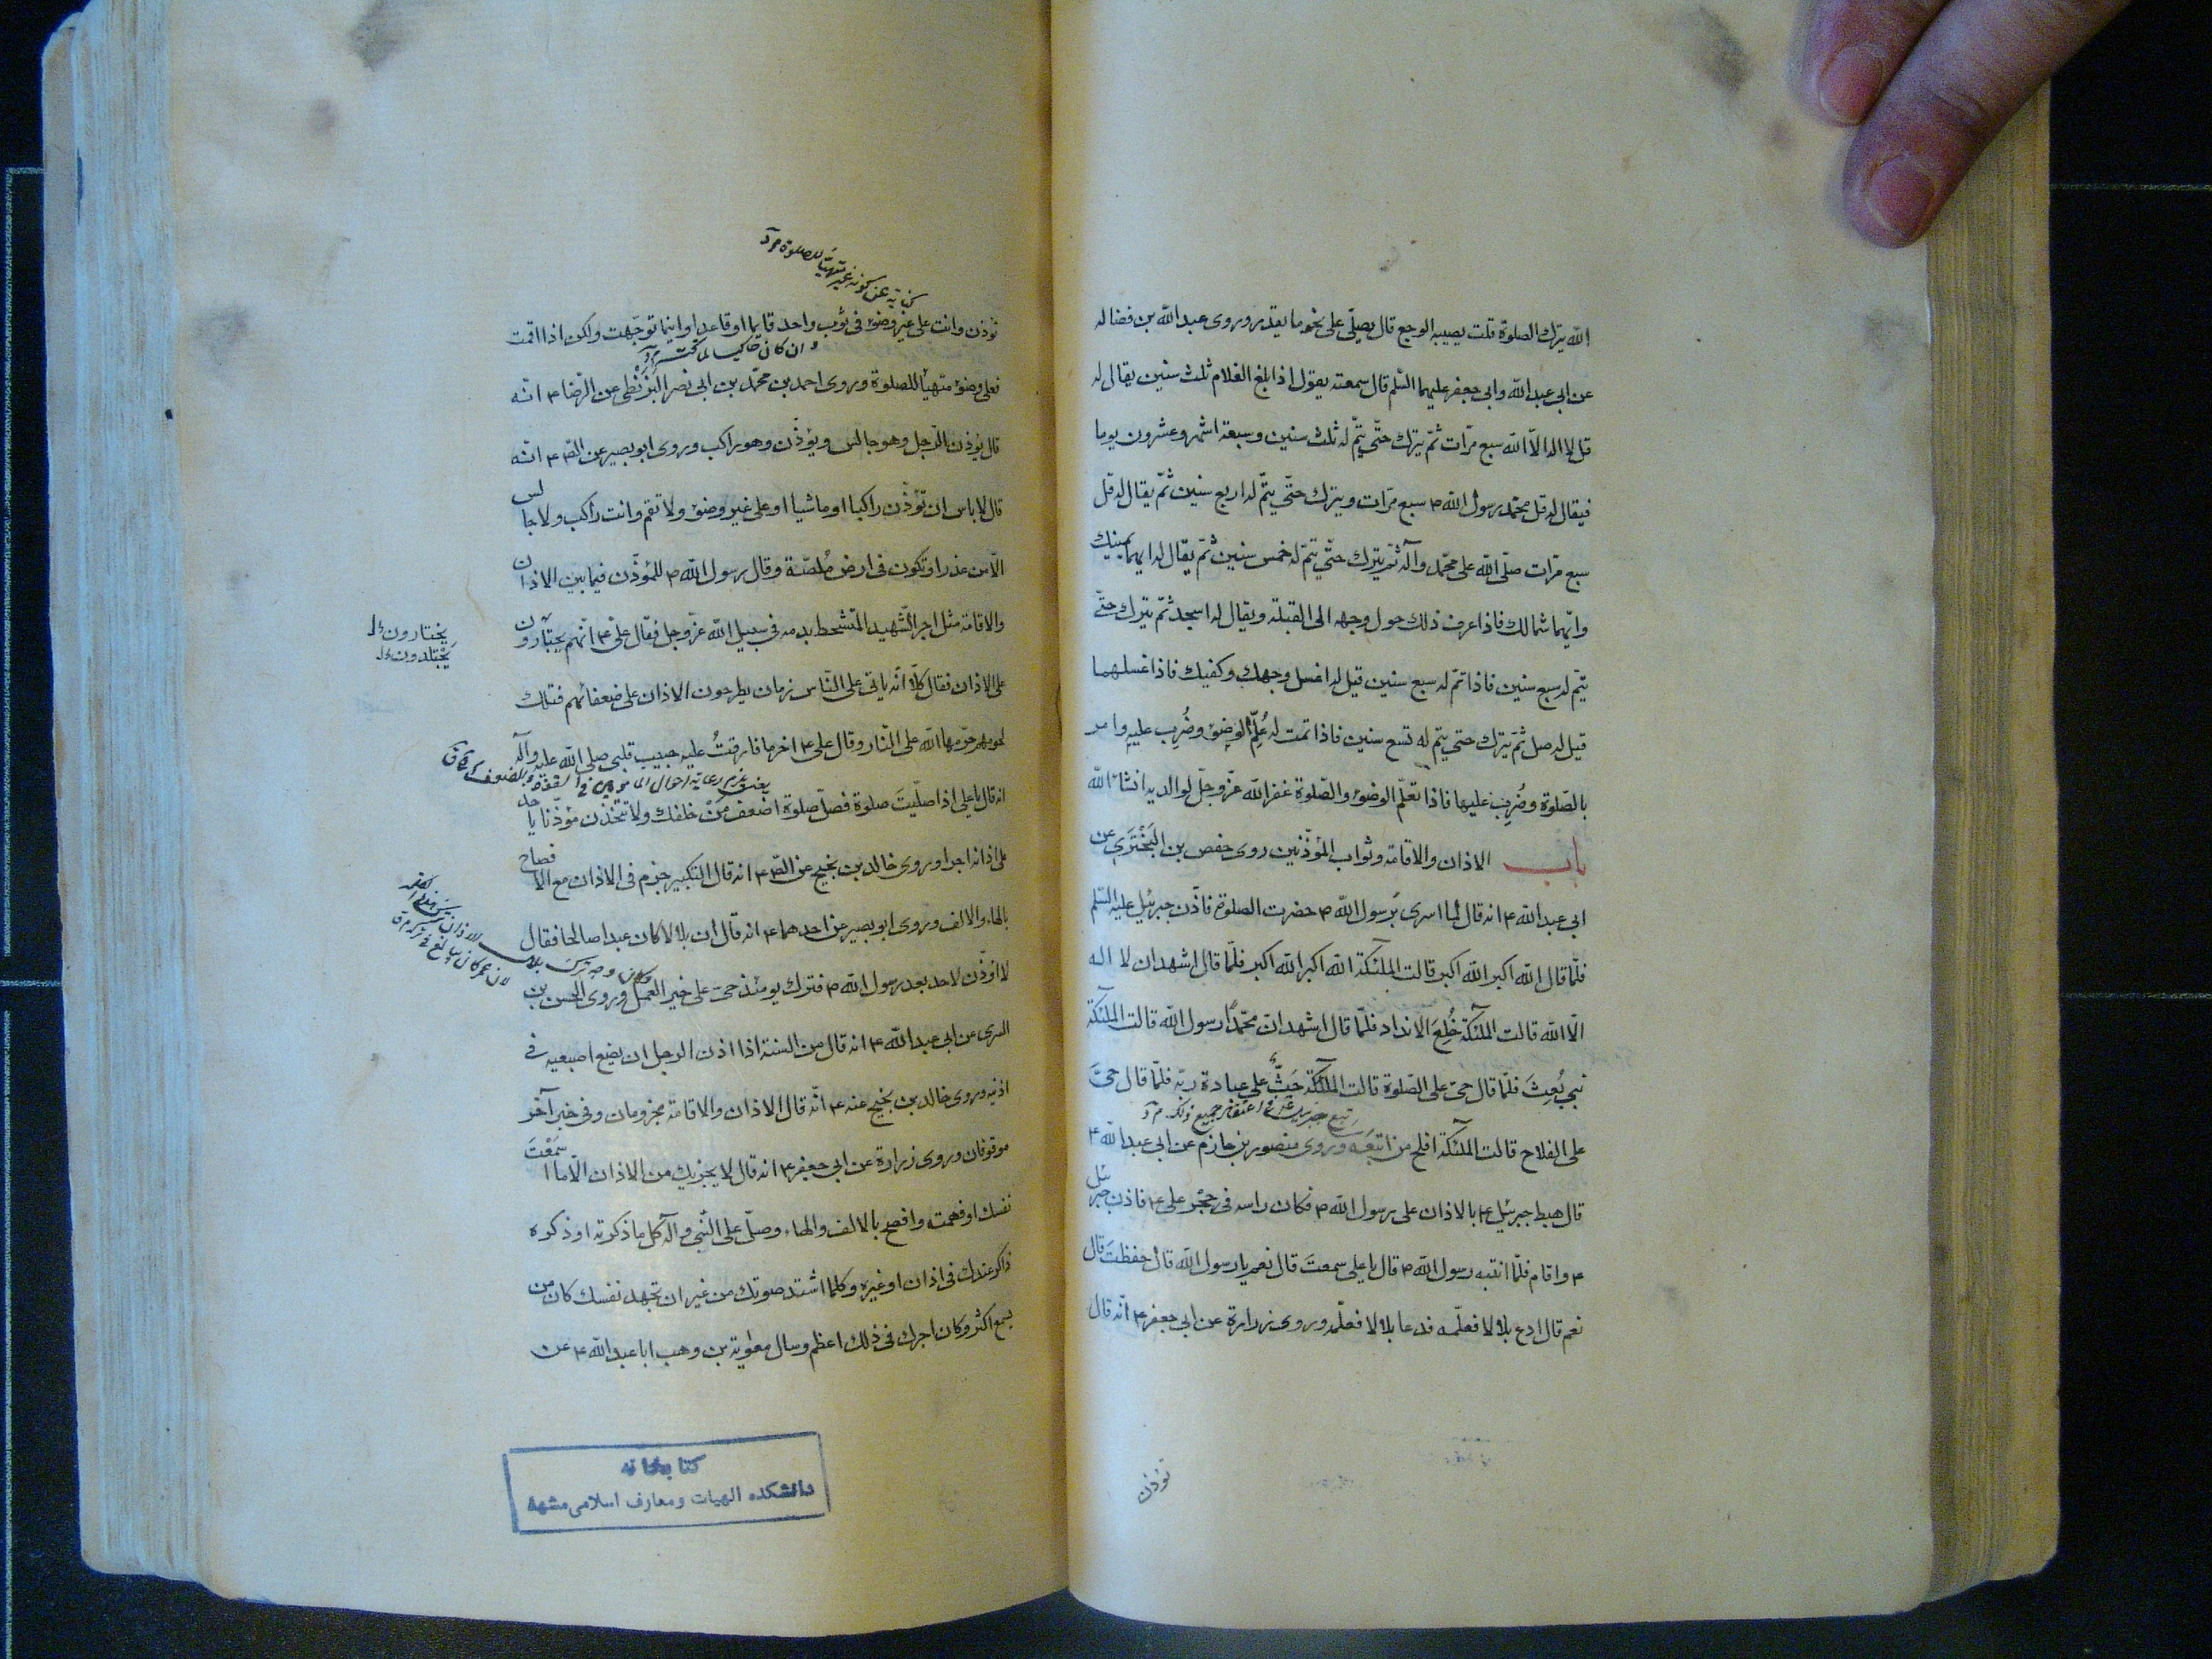 الله يترك الصلوة قلت يصيبه الوجع قال يصلّى على نحو ما يقدر وروى عبد الله بن فضاله
عن ابى عبد الله وابى جعفر عليهما السّلم قال سمعته يقول اذا بلغ الغلام ثلث سنين يقال له
قل لا اله الّا الله سبع مرّات ثمّ يترك حتّى يتمّ له ثلث سنين وسبعة اشهر وعشرون يوما
فيقال له قل محمّد رسول الله ص سبع مرّات ويترك حتّى يتمّ له اربع سنين ثمّ يقال له قل
سبع مرّات صلّى الله على محمّد وآله ثمّ يترك حتّى يتمّ له خمس سنين ثمّ يقال له ايهما يمينك
وايّهما شمالك فاذا عرف ذلك حول وجهه الى القبلة ويقال له اسجد ثمّ يترك حتّى
يتّم له سبع سنين فاذا تمّ له سبع سنين قيل له اغسل وجهك وكفيك فاذا غسلهما
قيل له صل ثمّ يترك حتى يتم له تسع سنين فاذا تمت له عُلِّم الوضوء وضُرِب عليه وامر
بالصّلوة وضُرِب عليها فاذا تعلّم الوضوء والصّلوة غفر الله عزّ وجلّ لوالديه انشاء الله
باب الاذان والاقامة وثواب المؤذّنين روى حفص بن البَخْتَرَى عن
ابى عبد الله ع انه قال لما اسرى برسول الله ص حضرت الصلوة فاذّن جبرئيل عليه السّلم
فلمّا قال الله اكبر الله اكبر قالت الملئكة الله اكبر الله اكبر فلمّا قال اشهد ان لا اله
الّا الله قالت الملئكة خُلِعَ الانداد فلمّا قال اشهد انّ محمّدًا رسول الله قالت الملئكة
نبى بُعِثَ فلمّا قال حىّ على الصّلوة قالت الملئكة حَثَّ على عبادة ربّه فلمّا قال حىَّ
على الفلاح قالت الملئكة افلح من اتبعَه وروى منصور بن حازم عن ابى عبد الله ع
قال هبط جبرئيل ع بالاذان على رسول الله ص فكان راسه فى حِجْر على ع فاذن جبرئيل
ع واقام فلمّا انتبه رسول الله ص قال يا على سمعتَ قال نعم يا رسول الله قال حفظتَ قال
نعم قال ادع بلالا فعلّمه فدعا بلالا فعلّمه وروى زرارة عن ابى جعفر ع انّه قال
تؤذن
كناية عن كونه غير متهيّأ للصلوة م د
تؤذن وانت على غير وضوء فى ثوب واحد قايما او قاعدا واينما توجّهت ولكن اذا اقمت
فعلى وضوء متهيأ للصلوة وروى احمد بن محمّد بن ابى نصر البَزَنْطى عن الرّضا ع انّه
قال يؤذن الرّجل وهو جالس ويؤذّن وهو راكب وروى ابو بصير عن الصّ ع انّه
قال لا باس ان تؤذّن راكبا او ماشيا او على غير وضوء ولا تقم وانت راكب ولا جالس
الّا من عذر او تكون فى ارض مُلصّة وقال رسول الله ص للمؤذّن فيما بين الاذان
والاقامة مثل اجر الشّهيد المتشحط بدمه فى سبيل الله عزّ وجل فقال علىّ ع انّهم يجتارون
يختارون خ ل
يجتلدون خ ل
على الاذان فقال كلّا انّه ياتى على النّاس زمان يطرحون الاذان على ضعفائهم فتلك
لحوم حرّمها الله على النّار وقال على ع اخر ما فارقتُ عليه حبيب قلبى صلى الله عليه وآله
انه قال يا على اذا صلّيتَ صلوة فصلّ صلوة اضعف مَنْ خلفك ولا تتّخذن مؤذّنا ياخذ
على اذانه اجرا وروى خالد بن نجيح عن الصّ ع انه قال التكبير جزم فى الاذان مع الافصاح
بالهاء والالف وروى ابو بصير عن احدهما ع انه قال ان بلالا كان عبدا صالحا فقال
لا اؤذّن لاحد بعد رسول الله ص فترك يومئذ حىّ على خير العمل وروى الحسن بن
السرى عن ابى عبد الله ع انه قال من السنة اذا اذن الرجل ان يضع اصبعيه فى
اذنيه وروى خالد بن نجيح عنه ع انّه قال الاذان والاقامة مجزومان وفى خبر آخر
موقوفان وروى زرارة عن ابى جعفر ع انه قال لا يجزيك من الاذان الّا ما اسمَعْتَ
نفسك او فهمته وافصح بالالف والهاء وصلّ على النّبى وآله كل ما ذكرته او ذكره
ذاكر عندك فى اذان او غيره وكلما اشتد صوتك من غير ان تجهد نفسك كان من
يسمع اكثر وكان اجرك فى ذلك اعظم وسال معوية بن وهب ابا عبد الله ع عن
كتابخانه
دانشكده الهيات ومعارف اسلامى مشهد